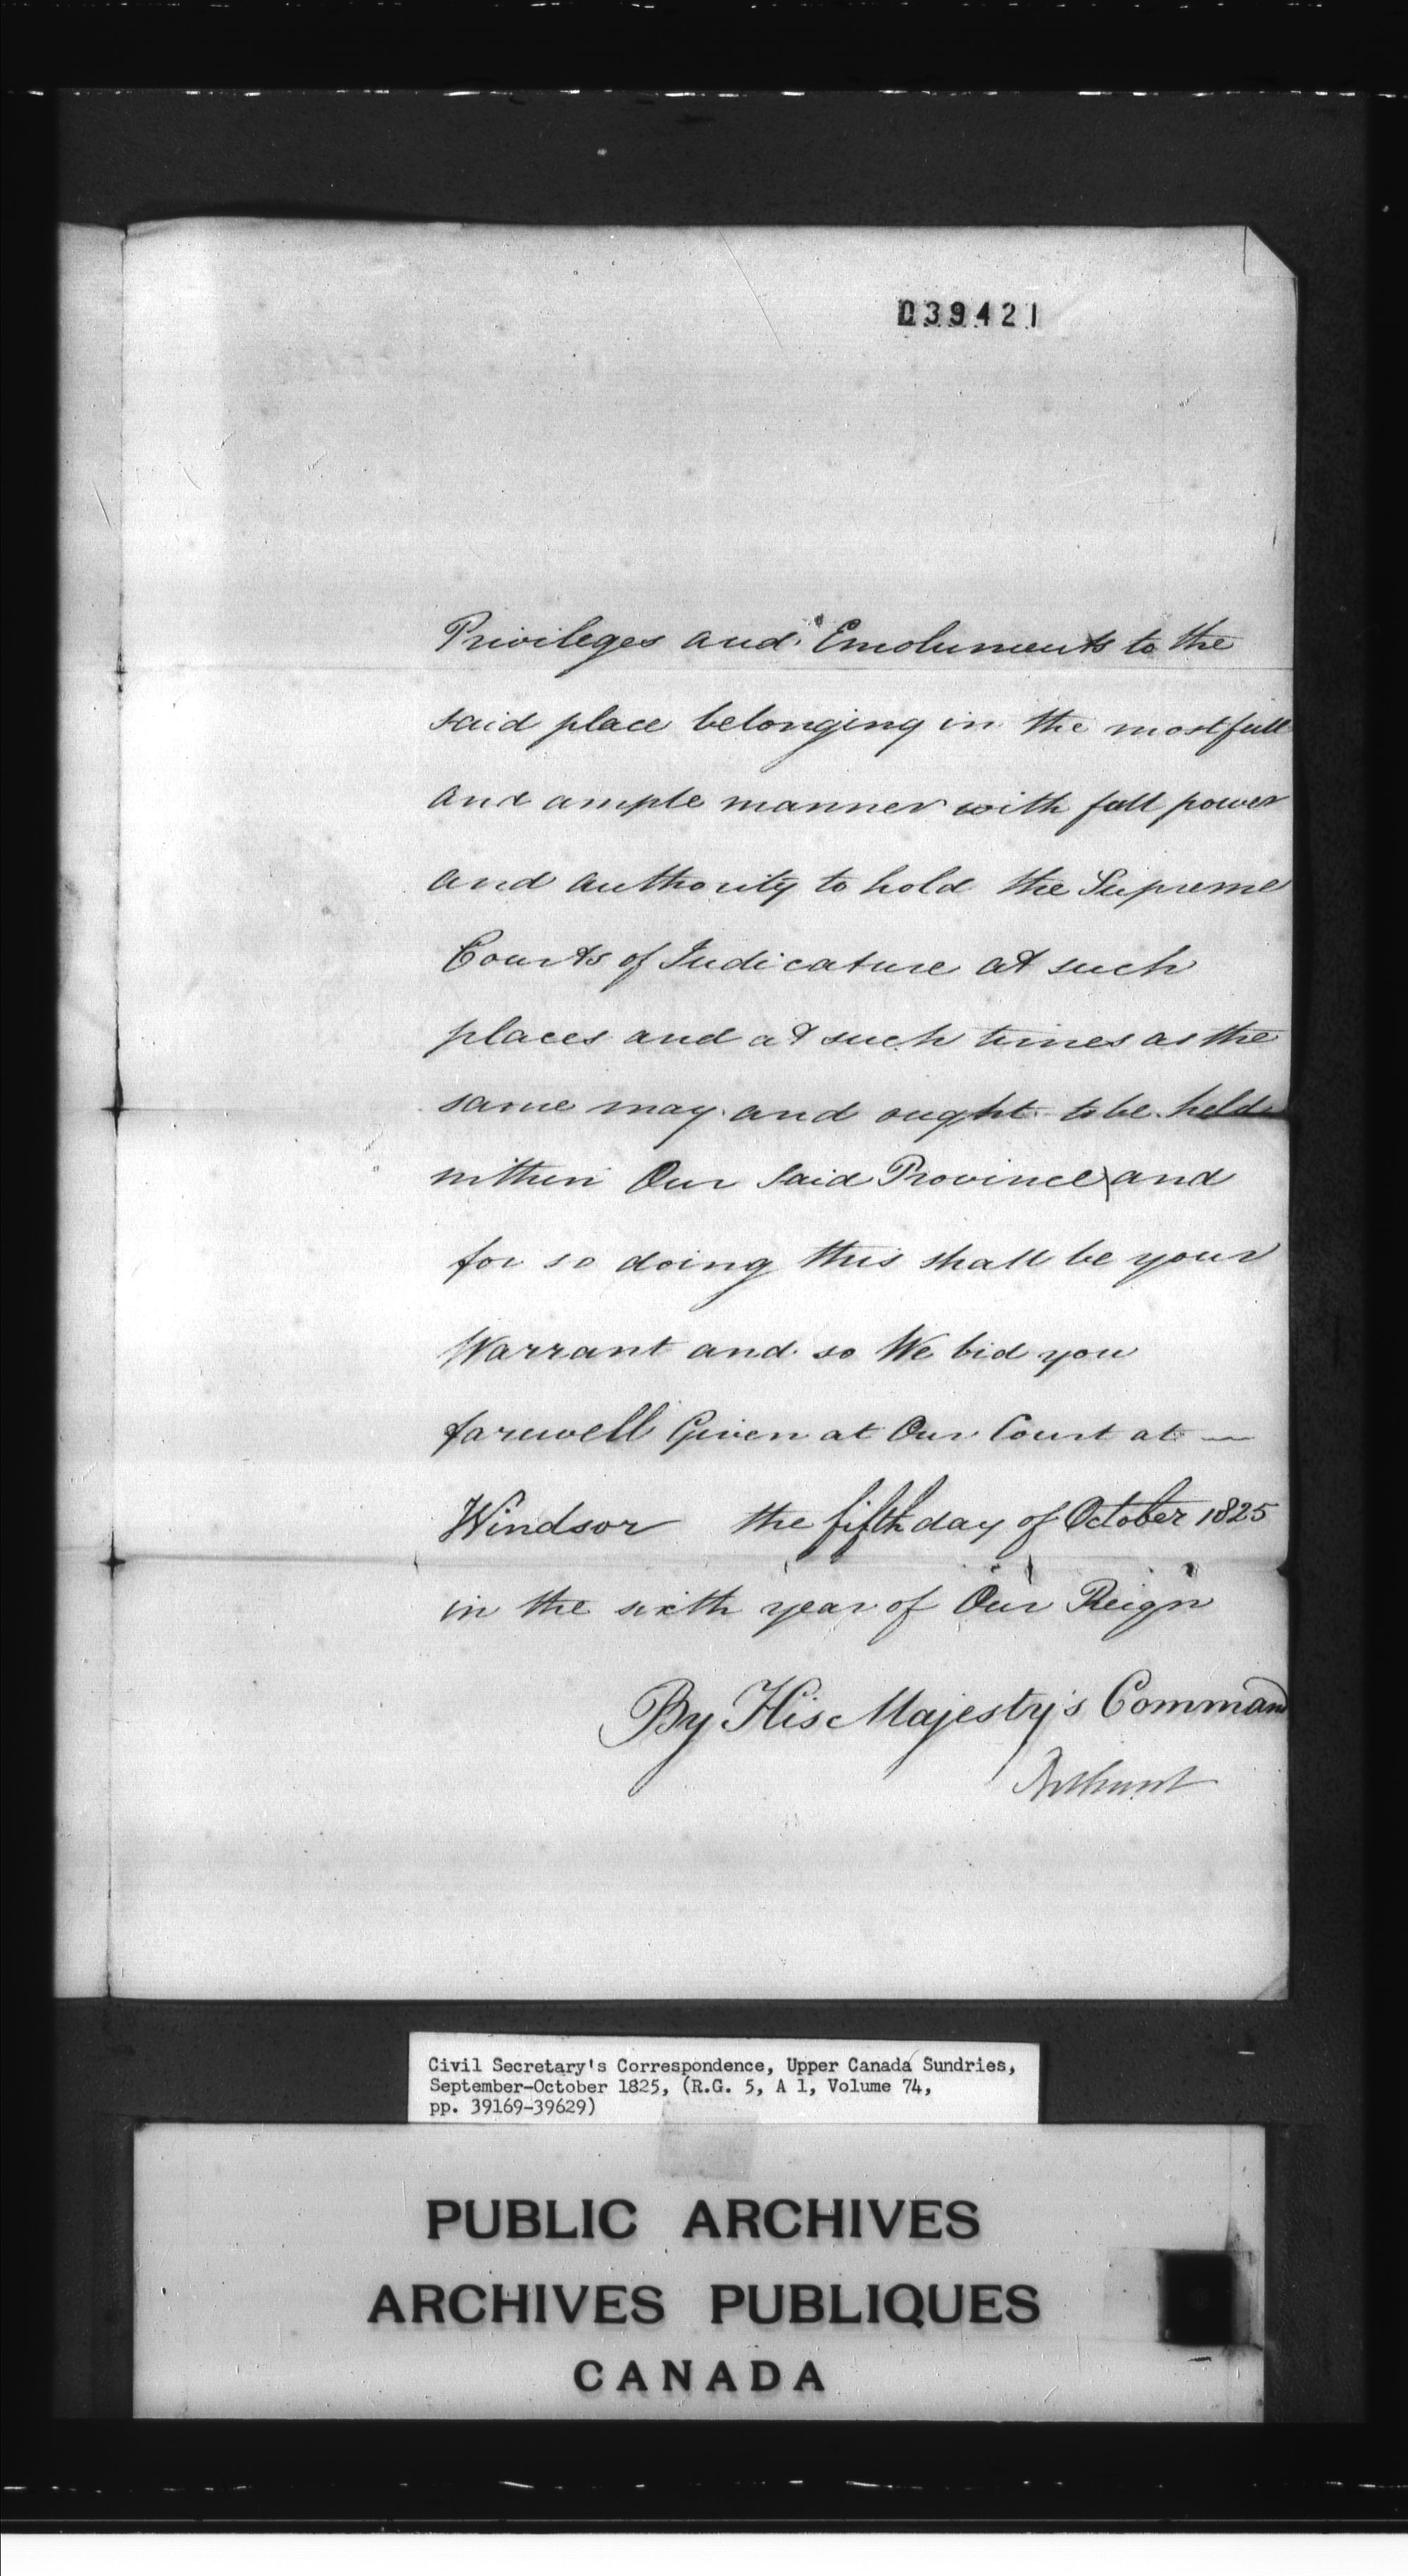 039421
Privileges and Emoluments to the
said place belonging in the most full
and ample manner with full power
and authority to hold the Supreme
Courts of Judicature at such
places and at such times as the
same may and ought to be held
within Our Said Province and
for so doing this shall be your
Warrant and so We bid you
farewell Given at Our Court at —
Windsor the fifth day of October 1825
in the sixth year of Our Reign
By His Majesty's Command
Bathurst
Civil Secretary's Correspondence, Upper Canada Sundries,
September-October 1825, (R.G. 5, A 1, Volume 74,
pp. 39169-39629)
PUBLIC ARCHIVES
ARCHIVES PUBLIQUES
CANADA